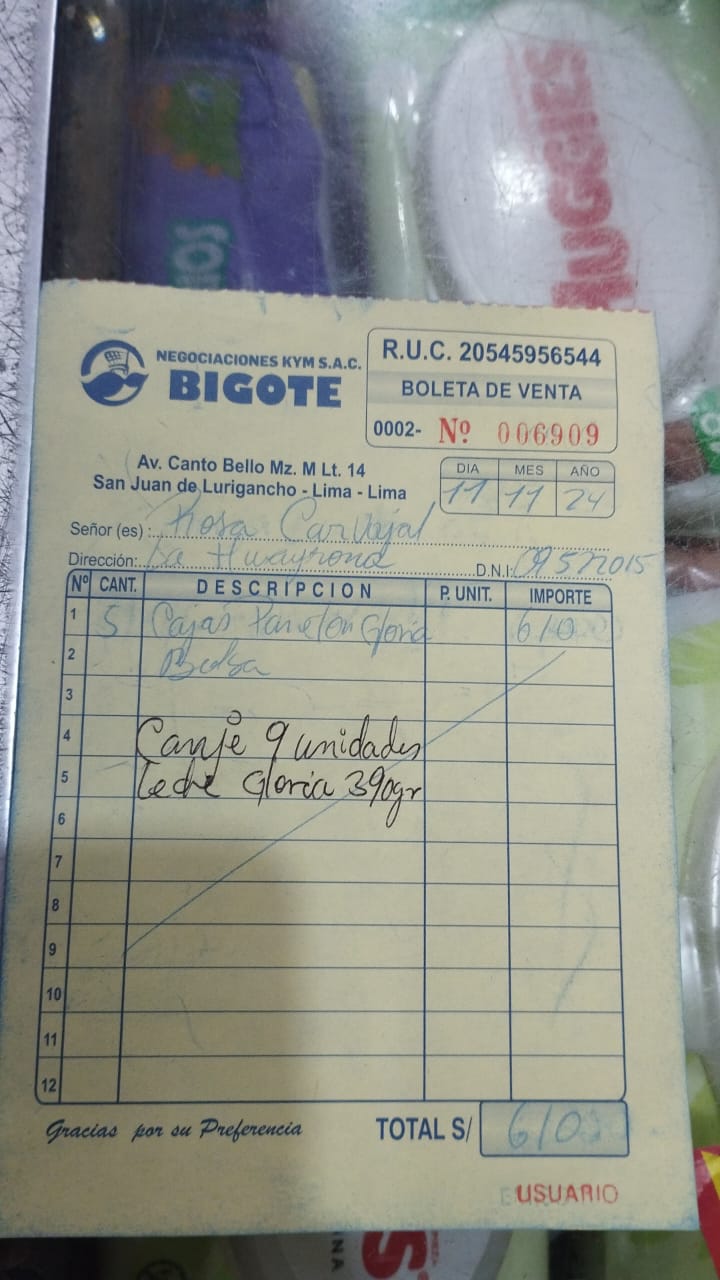 HUGGIES
NEGOCIACIONES KYM S.A.C.
BIGOTE
R.U.C. 20545956544
BOLETA DE VENTA
0002- Nº 006909
Av. Canto Bello Mz. M Lt. 14
San Juan de Lurigancho - Lima - Lima
DIA MES AÑO
11 11 24
Señor (es) : Rosa Carvajal
Dirección: La Huayrona D.N.I:
Nº CANT. DESCRIPCION P. UNIT. IMPORTE
1 5 Cajas Paneton Gloria 610
2 Bolsa
3
4 Canje 9 unidades
5 Leche Gloria 390gr
6
7
8
9
10
11
12
Gracias por su Preferencia TOTAL S/ 610
USUARIO